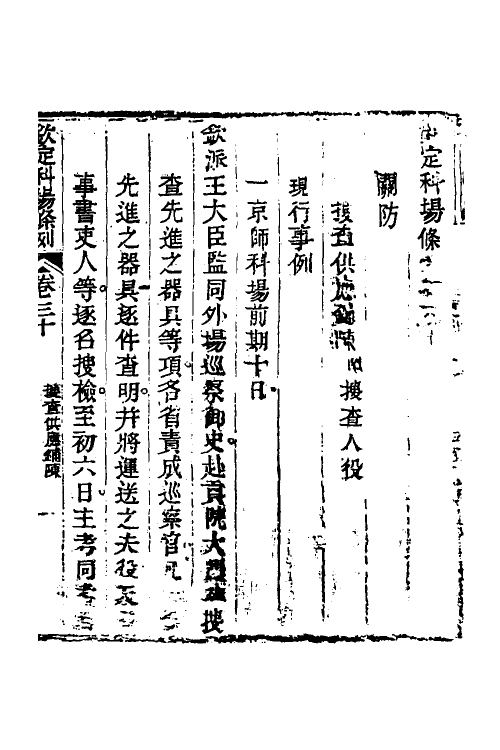 定科場條
關防
搜查供應鋪陳 搜查人役
現行事例
一京師科場前期十日
欽派王大臣監同外場巡察御史赴貢院大門 搜
查先進之器具等項各省責成巡察官凡
先進之器具逐件查明并將運送之夫役及
事書吏人等逐名搜檢至初六日主考同考
欽定科場條例 卷三十 搜查供應鋪陳 一